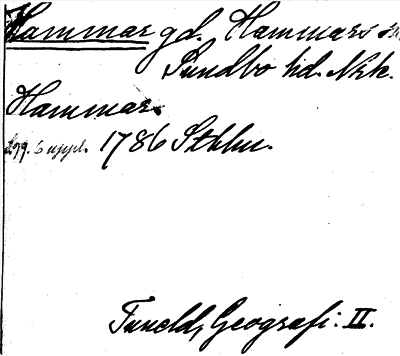 Hammar gd. Hammars sn
Sundbo hd. Nrk.
Hammar.
s. 99. 6 uppl. 1786 Sthlm.
Tuneld, Geografi: II.